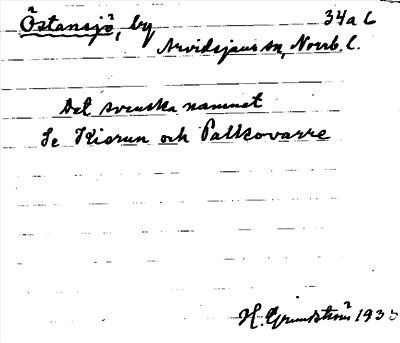 Östansjö, by 34a C
Arvidsjaurs sn, Norrb. l.
Det svenska namnet
Se Kiorun och Palkovarre
H. Grundström 1935